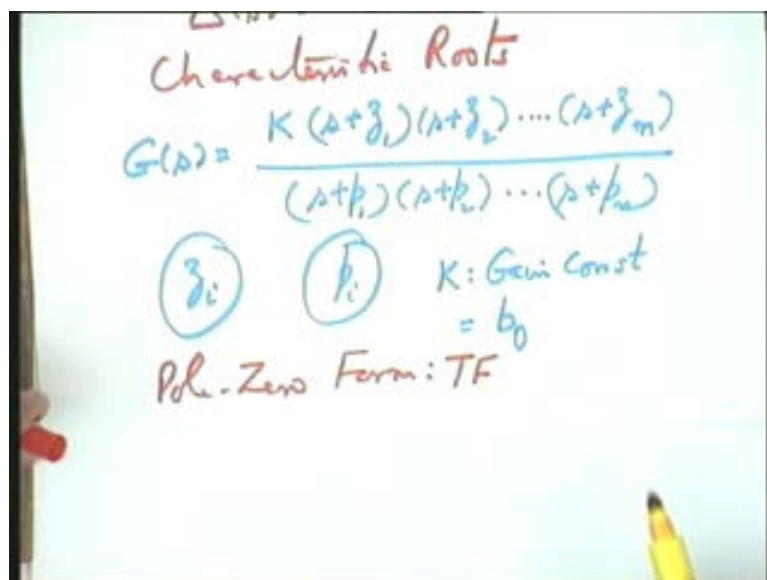 Characteristic Roots
G(s) = K(s+z₁)(s+z₂)....(s+zₘ)
(s+p₁)(s+p₂)...(s+pₙ)
zᵢ pᵢ K: Gain Const
= b₀
Pole-Zero Form: TF